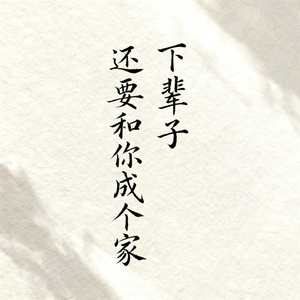 下辈子
还要和你成个家